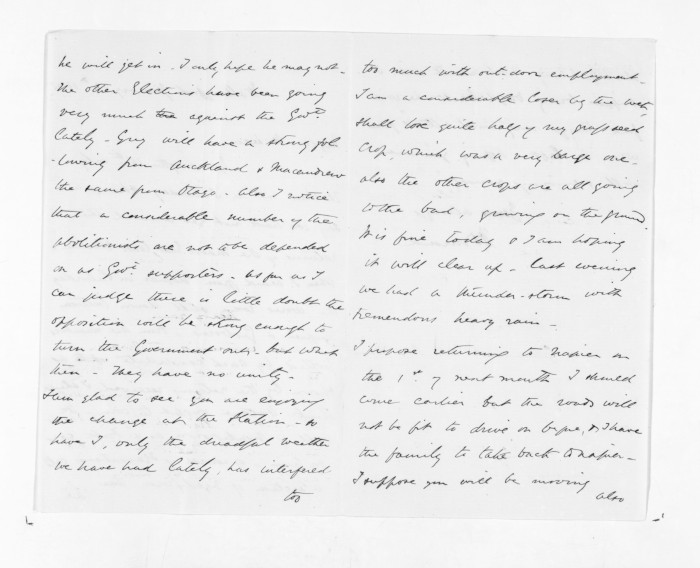 he will get in - I only hope he may not -
The other Elections have been going
very much against the Govt
lately - Grey will have a strong fol
-lowing from Auckland & Macandrew
the same from Otago - also I notice
that a considerable number of the
abolitionists are not to be depended
on as Govt supporters - as far as I
can judge there is little doubt the
opposition will be strong enough to
turn the Government out - but what
then - They have no unity -
I am glad to see you are enjoying
the change at the Station - so
have I, only the dreadful weather
we have had lately, has interfered
too
too much with out-door employment -
I am a considerable loser by the wet,
shall lose quite half of my grass seed
crop, which was a very large one -
also the other crops are all going
to the bad, growing on the ground.
It is fine today & I am hoping
it will clear up - last evening
we had a thunder-storm with
tremendous heavy rain -
I propose returning to Napier on
the 1st of next month I should
come earlier but the roads will
not be fit to drive on before, & I have
the family to take back to Napier -
I suppose you will be moving
also